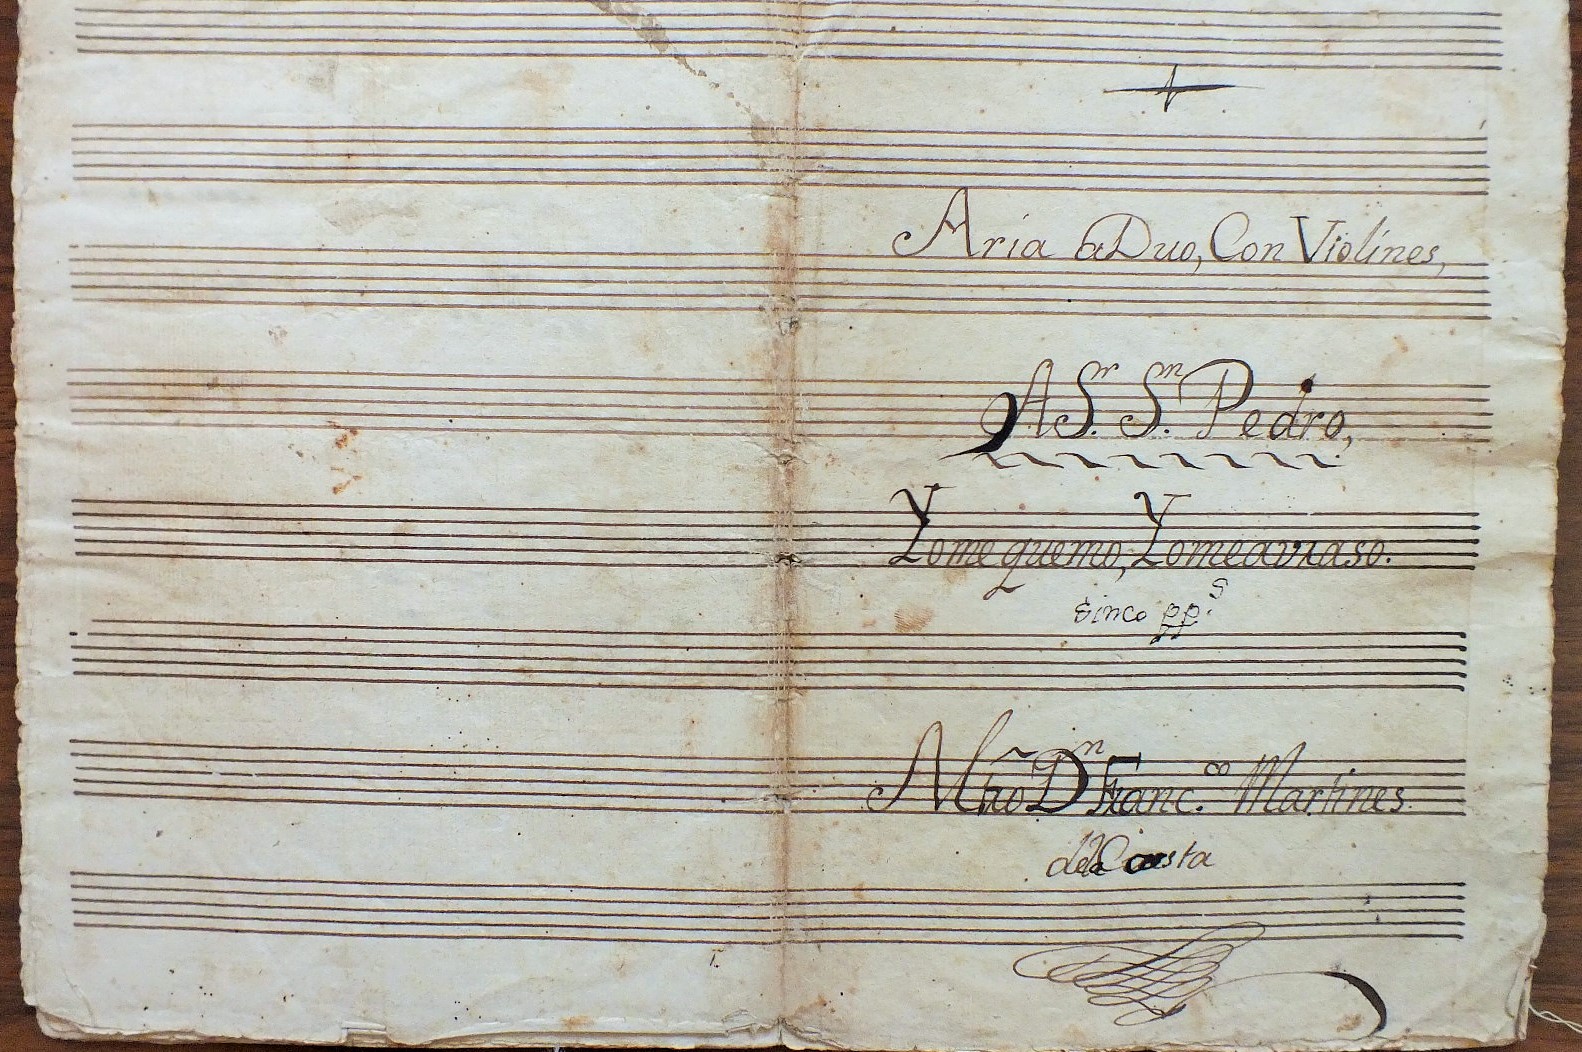 Aria a Duo, Con Violines,
A Sr. Sn. Pedro,
Yo me quemo, Yo me avraso.
Sinco pp.s
Mro Dn Franc.co Martines
dela Costa